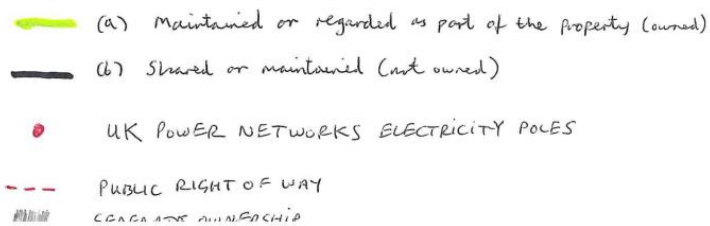 (a) Maintained or regarded as part of the property (owned)
(b) Shared or maintained (not owned)
UK POWER NETWORKS ELECTRICITY POLES
PUBLIC RIGHT OF WAY
OWNERSHIP